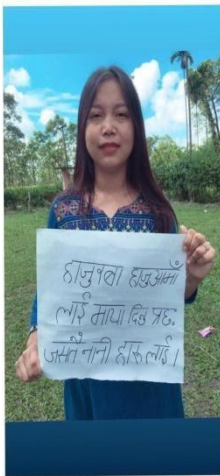 हजुरबा हजुरआमाँ
लाई माया दिनु पर्छ.
जसतै नानी हारू लाई।